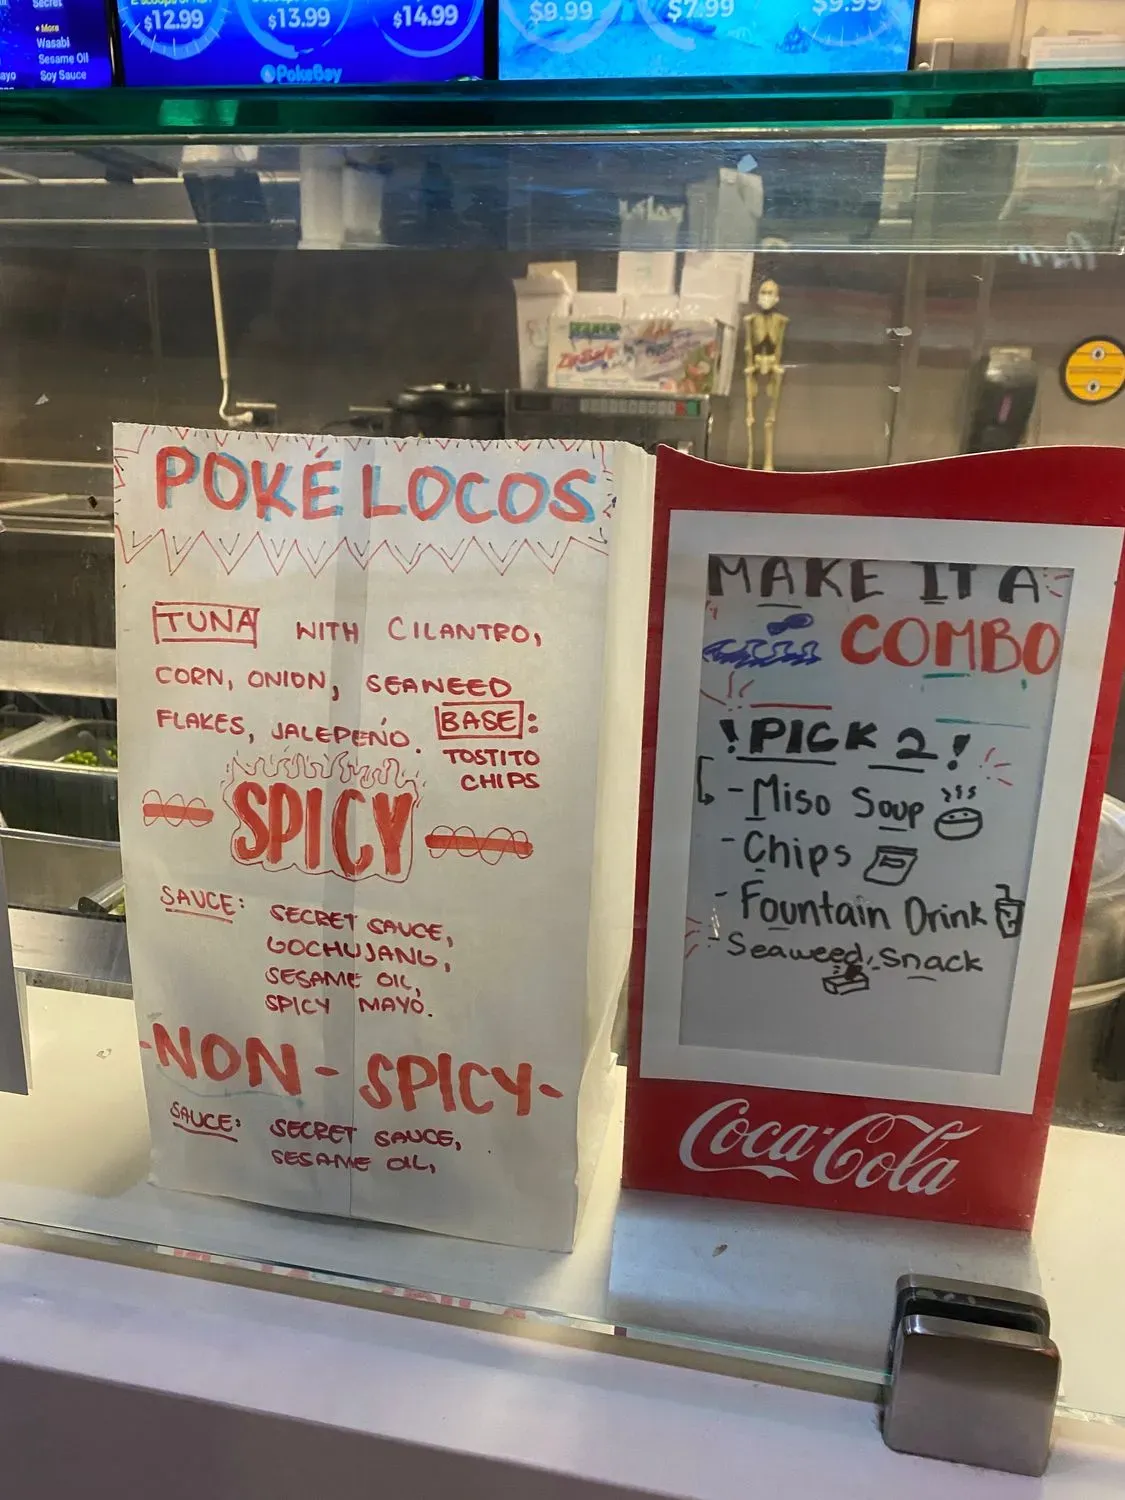 $12.99
$13.99
$14.99
$9.99
$7.99
$9.99
Secret
• More
Wasabi
Sesame Oil
Soy Sauce
PokeBay
POKÉ LOCOS
TUNA WITH CILANTRO,
CORN, ONION, SEAWEED
FLAKES, JALEPEÑO.
BASE:
TOSTITO
CHIPS
SPICY
SAUCE: SECRET SAUCE,
GOCHUJANG,
SESAME OIL,
SPICY MAYO.
-NON-SPICY-
SAUCE: SECRET SAUCE,
SESAME OIL,
MAKE IT A
COMBO
!PICK 2!
- Miso Soup
- Chips
- Fountain Drink
- Seaweed Snack
Coca-Cola